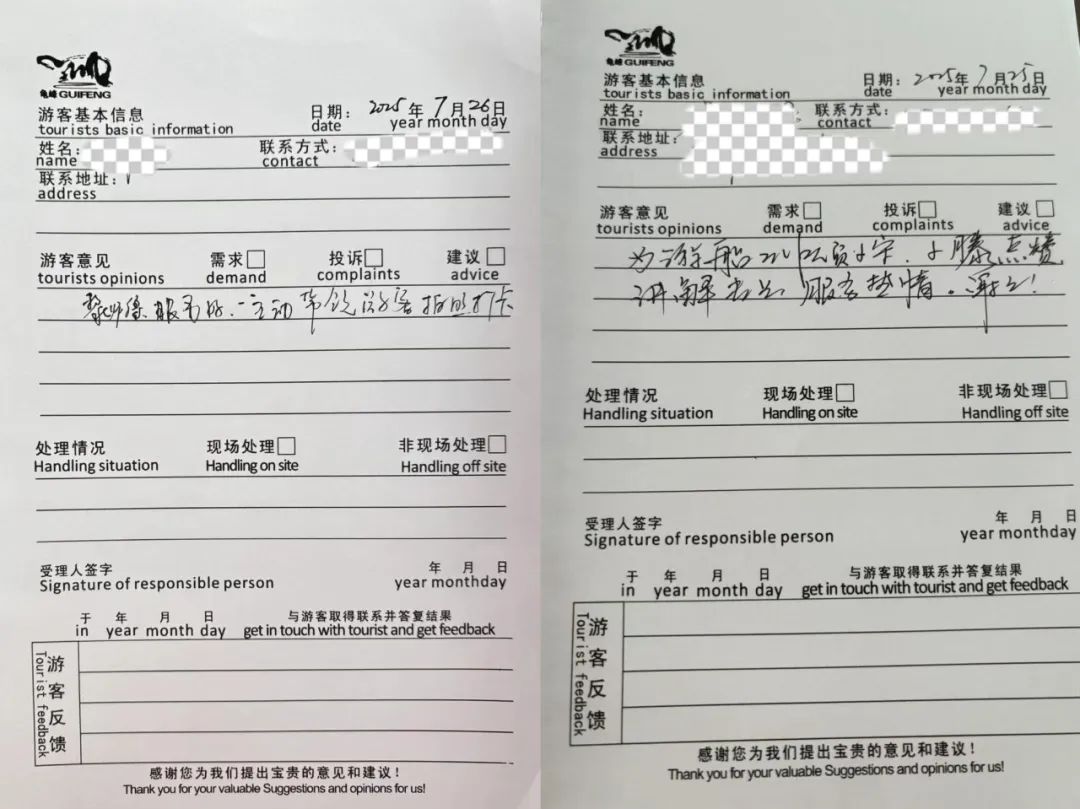 龟峰 GUIFENG
游客基本信息 日期: 2025年7月26日
tourists basic information date year month day
姓名: 联系方式:
name contact
联系地址:
address
游客意见 需求 投诉 建议
tourists opinions demand complaints advice
服务好,主动带领游客拍照打卡
处理情况 现场处理 非现场处理
Handling situation Handling on site Handling off site
受理人签字 年 月 日
Signature of responsible person year monthday
于 年 月 日 与游客取得联系并答复结果
in year month day get in touch with tourist and get feedback
游客反馈
Tourist feedback
感谢您为我们提出宝贵的意见和建议!
Thank you for your valuable Suggestions and opinions for us!
龟峰 GUIFENG
游客基本信息 日期: 2025年7月25日
tourists basic information date year month day
姓名: 联系方式:
name contact
联系地址:
address
游客意见 需求 投诉 建议
tourists opinions demand complaints advice
为游船 点赞
讲解 服务热情。
处理情况 现场处理 非现场处理
Handling situation Handling on site Handling off site
受理人签字 年 月 日
Signature of responsible person year monthday
于 年 月 日 与游客取得联系并答复结果
in year month day get in touch with tourist and get feedback
游客反馈
Tourist feedback
感谢您为我们提出宝贵的意见和建议!
Thank you for your valuable Suggestions and opinions for us!